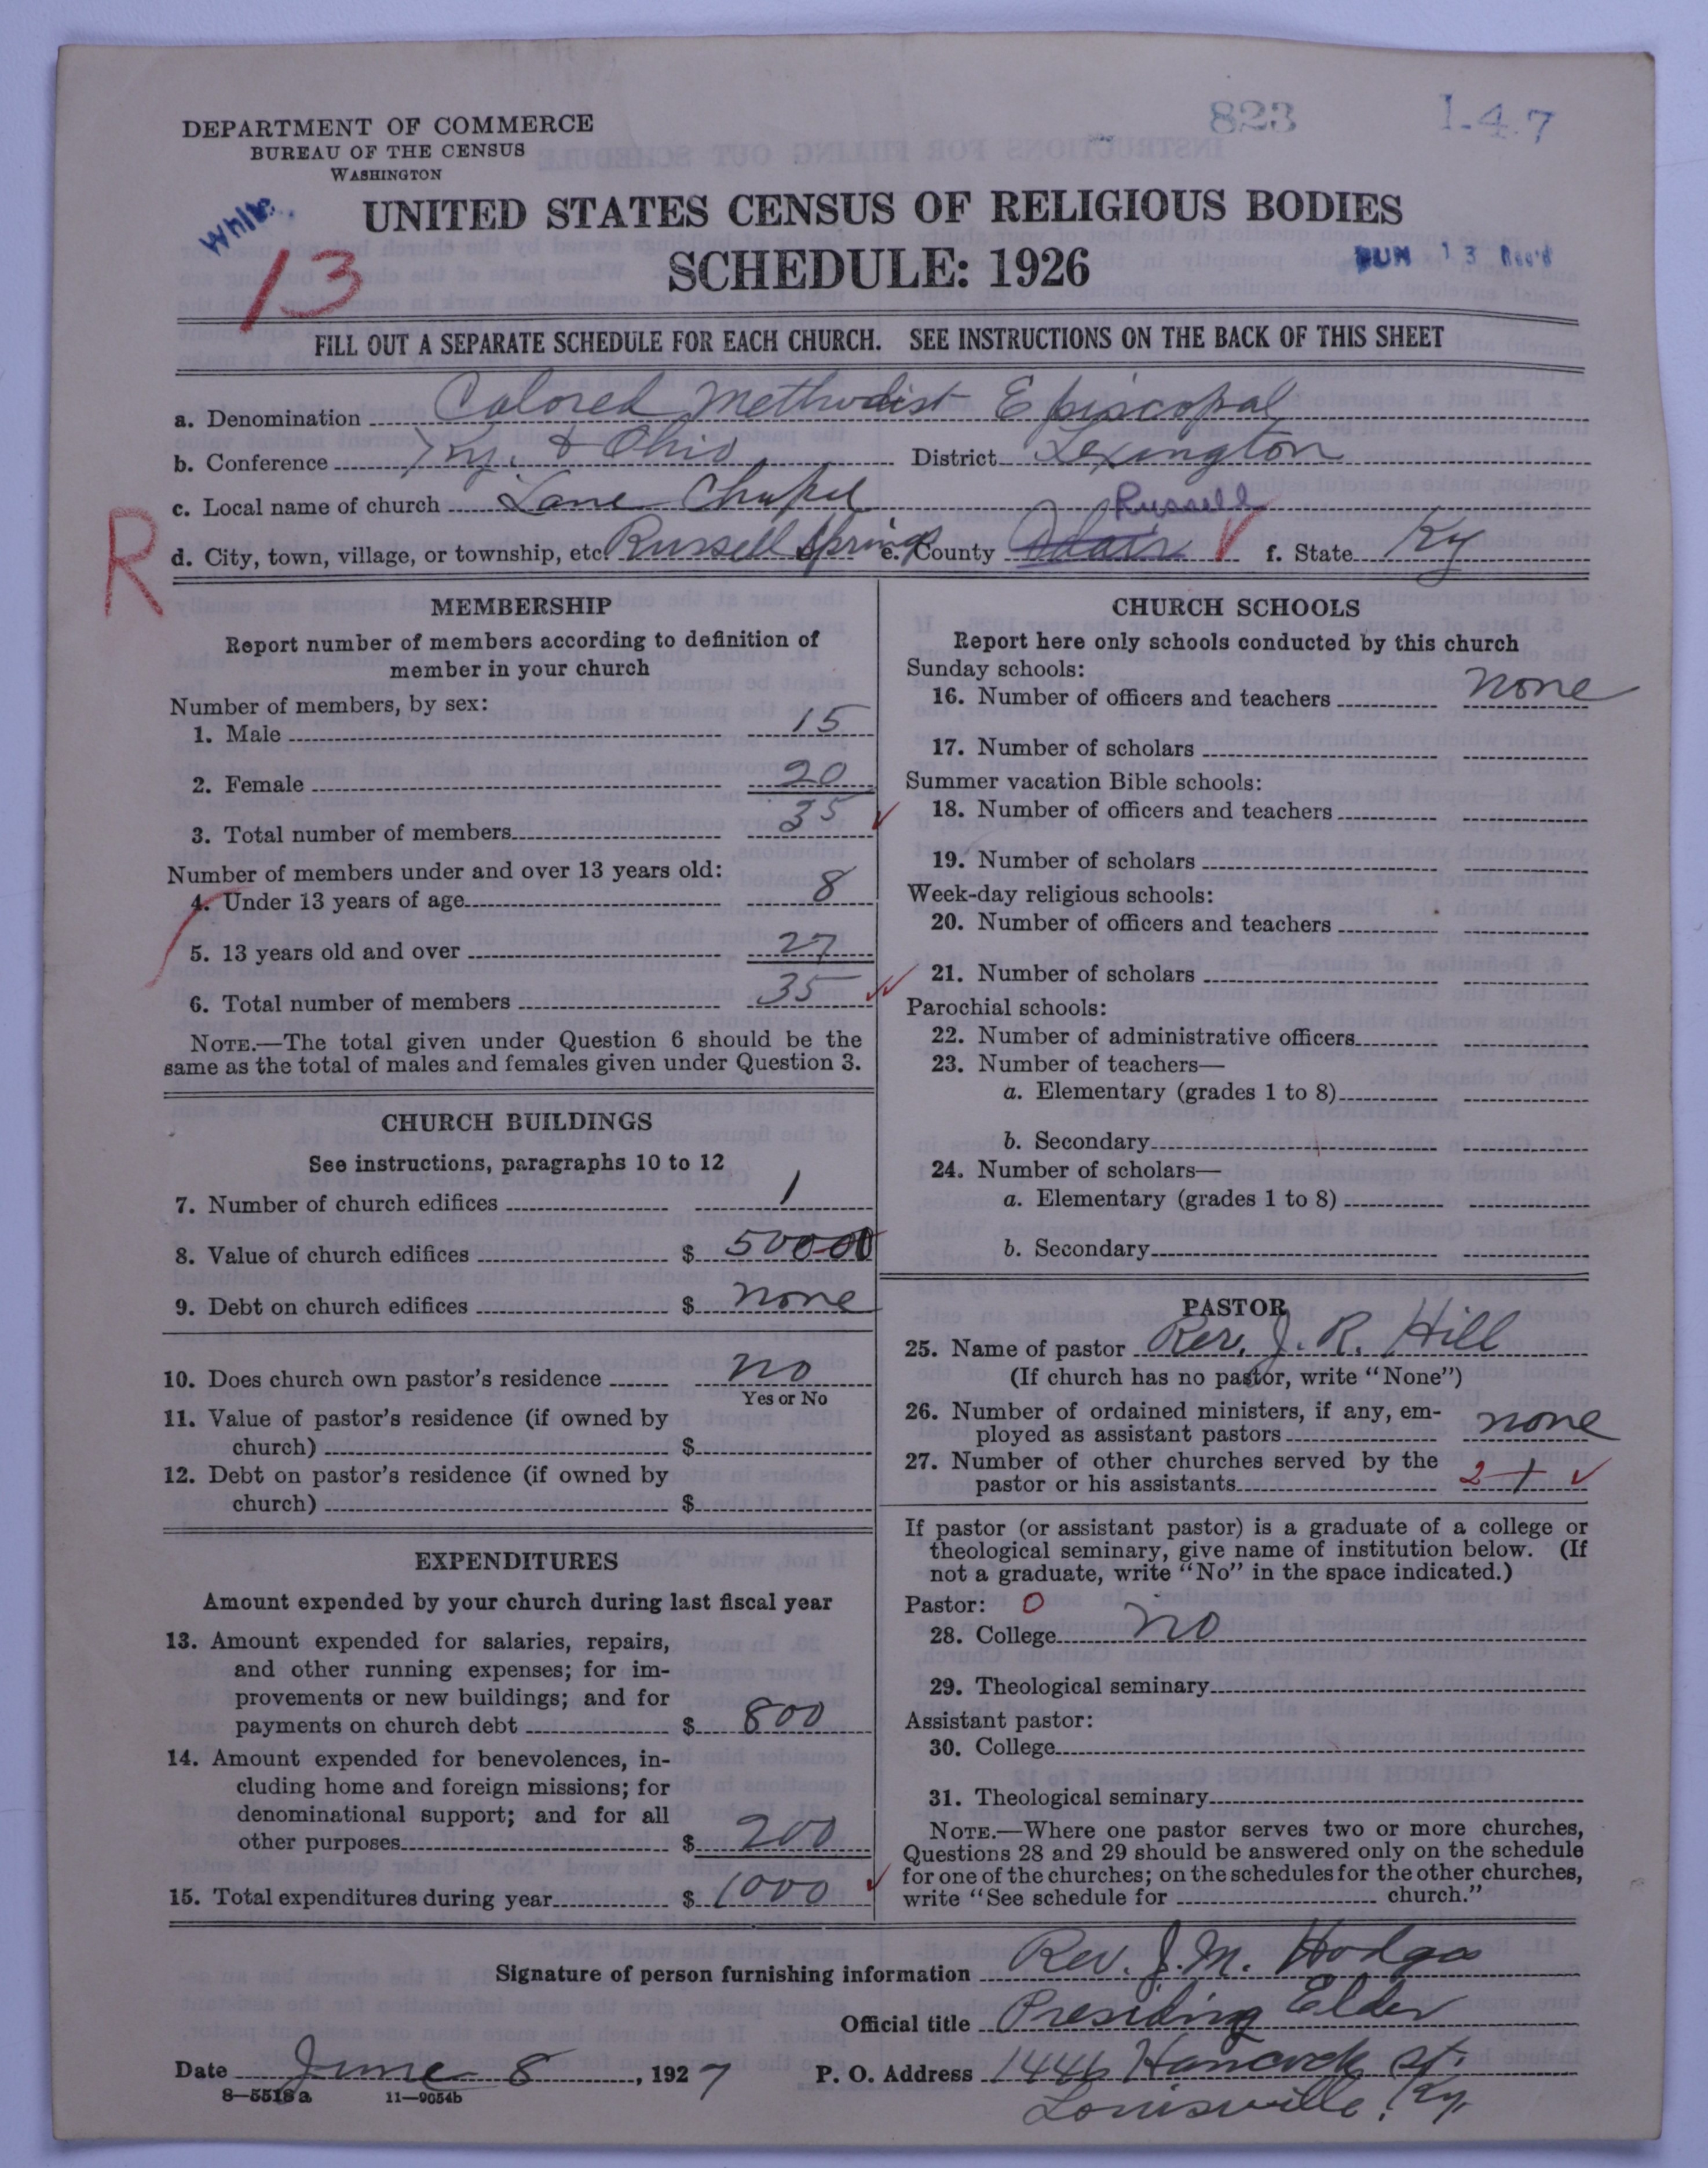 823 1-4-7
DEPARTMENT OF COMMERCE
BUREAU OF THE CENSUS
WASHINGTON
White
13
UNITED STATES CENSUS OF RELIGIOUS BODIES
SCHEDULE: 1926
JUN 13 Rec'd
FILL OUT A SEPARATE SCHEDULE FOR EACH CHURCH. SEE INSTRUCTIONS ON THE BACK OF THIS SHEET
a. Denomination Colored Methodist Episcopal
b. Conference Ky. & Ohio District Lexington
c. Local name of church Lane Chapel
Russell
R
d. City, town, village, or township, etc. Russell Springs e. County Adair f. State Ky
MEMBERSHIP
Report number of members according to definition of
member in your church
Number of members, by sex:
1. Male 15
2. Female 20
3. Total number of members 35
Number of members under and over 13 years old:
4. Under 13 years of age 8
5. 13 years old and over 27
6. Total number of members 35
NOTE.—The total given under Question 6 should be the
same as the total of males and females given under Question 3.
CHURCH BUILDINGS
See instructions, paragraphs 10 to 12
7. Number of church edifices 1
8. Value of church edifices $ 50000
9. Debt on church edifices $ none
10. Does church own pastor's residence no
Yes or No
11. Value of pastor's residence (if owned by
church) $
12. Debt on pastor's residence (if owned by
church) $
EXPENDITURES
Amount expended by your church during last fiscal year
13. Amount expended for salaries, repairs,
and other running expenses; for im-
provements or new buildings; and for
payments on church debt $ 800
14. Amount expended for benevolences, in-
cluding home and foreign missions; for
denominational support; and for all
other purposes $ 200
15. Total expenditures during year $ 1000
CHURCH SCHOOLS
Report here only schools conducted by this church
Sunday schools:
16. Number of officers and teachers none
17. Number of scholars
Summer vacation Bible schools:
18. Number of officers and teachers
19. Number of scholars
Week-day religious schools:
20. Number of officers and teachers
21. Number of scholars
Parochial schools:
22. Number of administrative officers
23. Number of teachers—
a. Elementary (grades 1 to 8)
b. Secondary
24. Number of scholars—
a. Elementary (grades 1 to 8)
b. Secondary
PASTOR
25. Name of pastor Rev. J. R. Hill
(If church has no pastor, write "None")
26. Number of ordained ministers, if any, em-
ployed as assistant pastors none
27. Number of other churches served by the
pastor or his assistants 2 1
If pastor (or assistant pastor) is a graduate of a college or
theological seminary, give name of institution below. (If
not a graduate, write "No" in the space indicated.)
Pastor: 0
28. College no
29. Theological seminary
Assistant pastor:
30. College
31. Theological seminary
NOTE.—Where one pastor serves two or more churches,
Questions 28 and 29 should be answered only on the schedule
for one of the churches; on the schedules for the other churches,
write "See schedule for church."
Signature of person furnishing information Rev. J. M. Hodges
Official title Presiding Elder
Date June 8, 1927 P. O. Address 1446 Hancock St.
8—5518a 11—9054b
Louisville, Ky.